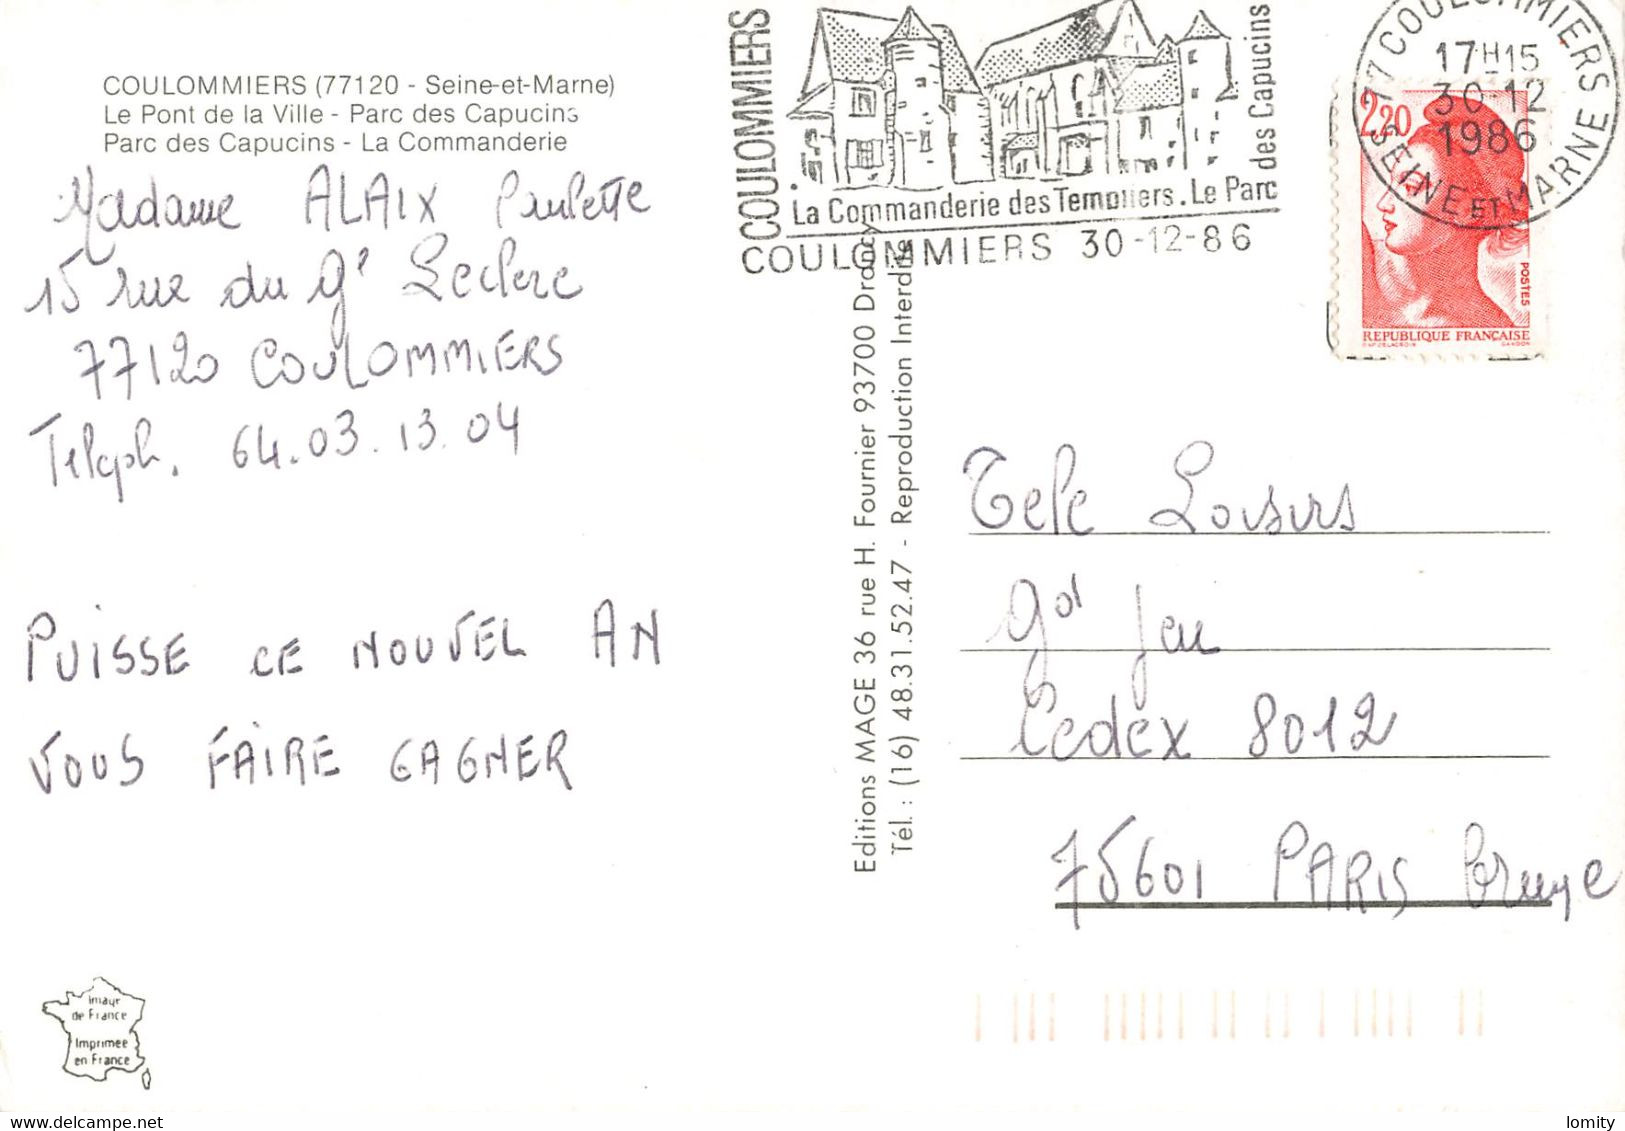 COULOMMIERS (77120 - Seine-et-Marne)
Le Pont de la Ville - Parc des Capucins
Parc des Capucins - La Commanderie
Madame ALAIX Paulette
15 rue du gl Leclerc
77120 COULOMMIERS
Teleph. 64.03.13.04
PUISSE CE NOUVEL AN
VOUS FAIRE GAGNER
Image
de France
Imprimée
en France
Editions MAGE 36 rue H. Fournier 93700 Drancy
Tél. : (16) 48.31.52.47 - Reproduction Interdite
COULOMMIERS
des Capucins
La Commanderie des Templiers. Le Parc
COULOMMIERS 30-12-86
77 COULOMMIERS
17H15
30-12
1986
SEINE ET MARNE
2,20
POSTES
REPUBLIQUE FRANÇAISE
GANDON
Tele Loisirs
gd Jeu
Cedex 8012
75601 PARIS Brune
lomity